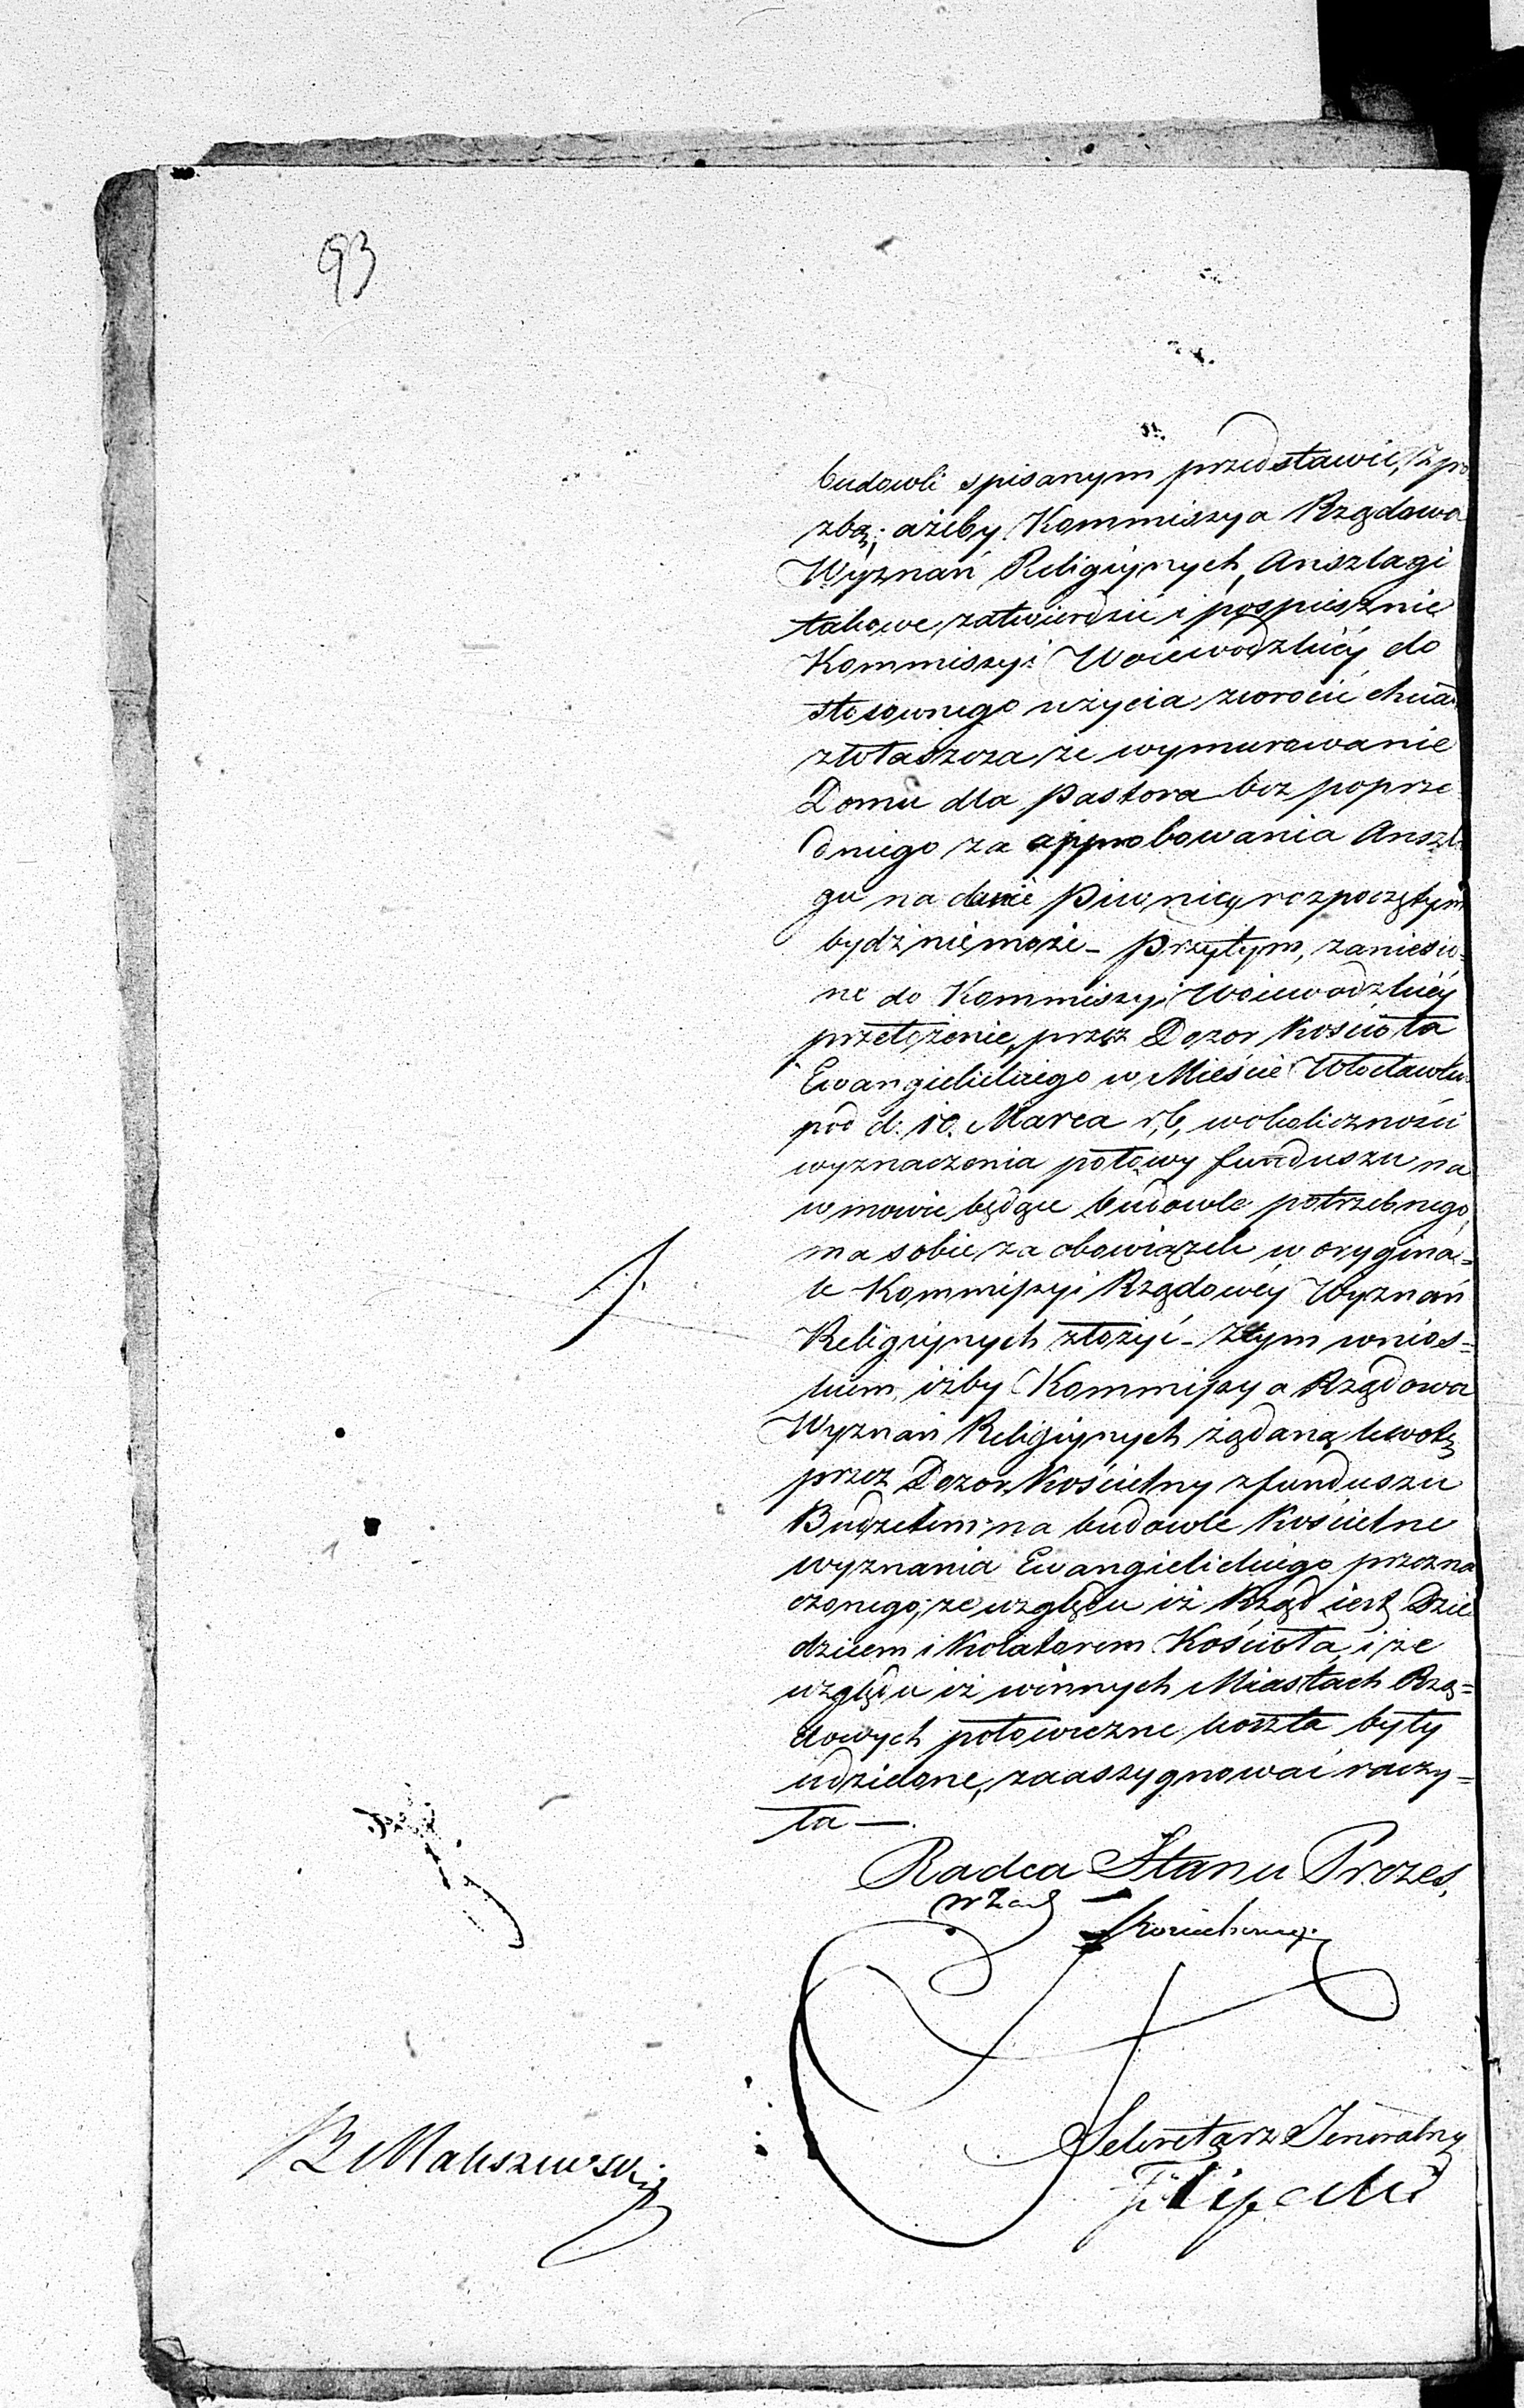 93
budowli spisanym przedstawić, z pro
zbą; ażeby Kommissya Rządowa
Wyznań Religiynych, Anszlagi
takowe, zatwierdzić i pospiesznie
Kommissyi Woiewodzkiéy do
stosownego użycia zwrocić chcia
zwłaszcza, że wymurowanie
Domu dla Pastora bez poprze
dniego za approbowania Anszla
gu na danie Piwnicy, rozpoczętym
bydź nie może - Przytym, zaniesio-
ne do Kommissyi Woiewodzkiéy
przełożenie, przez Dozor Kościoła
Ewangielickiego w Mieście Włocławku
pod d. 10. Marca r. b, w okoliczności
wyznaczenia połowy funduszu na
w mowie będące budowle potrzebnego,
ma sobie za obowiązek w orygina=
le Kommissyi Rządowéy Wyznań
Religiynych złożyć - Z tym wnios=
kiem, iżby Kommissya Rządowa
Wyznań Religiynych żądaną kwotę
przez Dozor Kościelny z funduszu
Budżetem na budowle Kościelne
wyznania Ewangielickiego przezna
czonego; ze względu iż Rząd iest Dzie
dzicem i Kolatorem Kościoła, i ze
względu iż w innych Miastach Rzą=
dowych połowiczne koszta były
udzielone, zaassygnować raczy=
ła —
Radca Stanu Prezes,
w Zast
Sekretarz Jeneralny
Filipecki
R Maliszewski